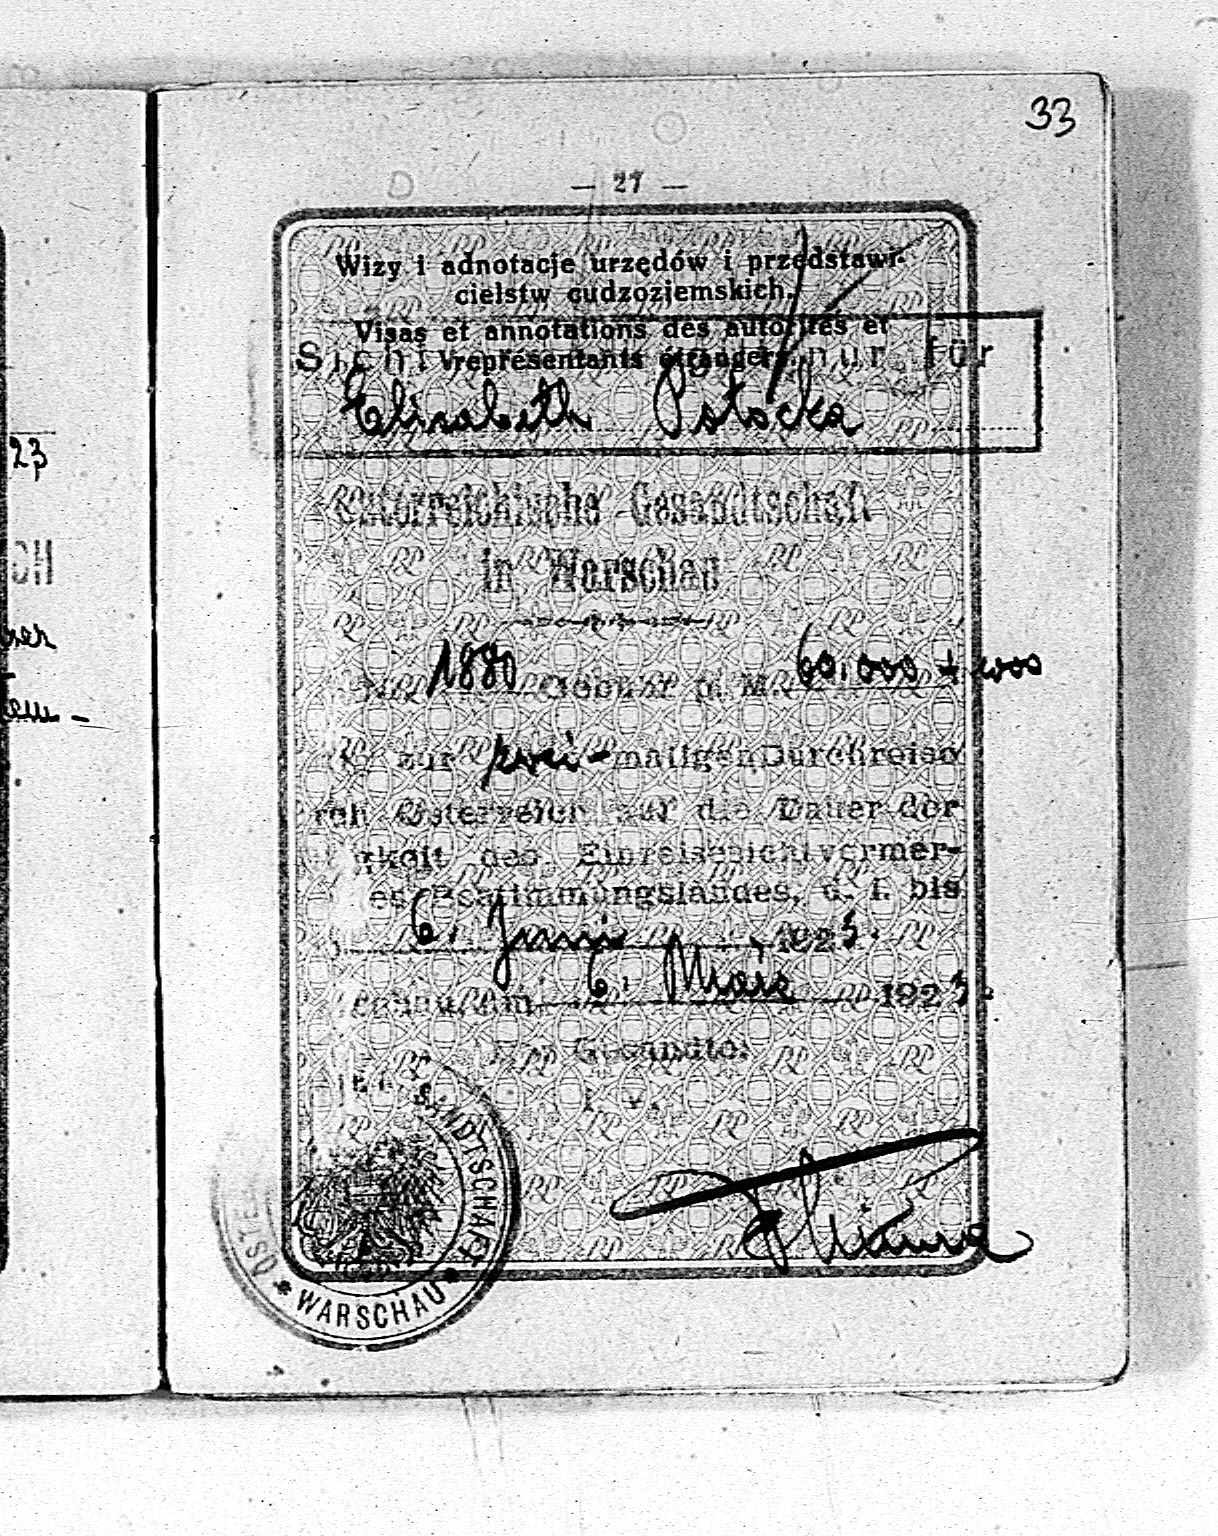 33
— 27 —
Wizy i adnotacje urzędów i przedstawi-
cielstw cudzoziemskich.
Visas et annotations des autorités et
représentants étrangers
nur für
Elisabeth Potocka
Österreichische Gesandtschaft
in Warschau
1880 Gebühr p. M. 60.000 + 1000
zur zwei-maligen Durchreise
Österreich auf die Dauer der
gkeit des Einreisesichtvermer-
es Bestimmungslandes, d. i. bis
6. Juni 1923.
am 6. März 1923.
Gesandte:
ÖSTER SANDTSCHAFT
* WARSCHAU *
23
CH